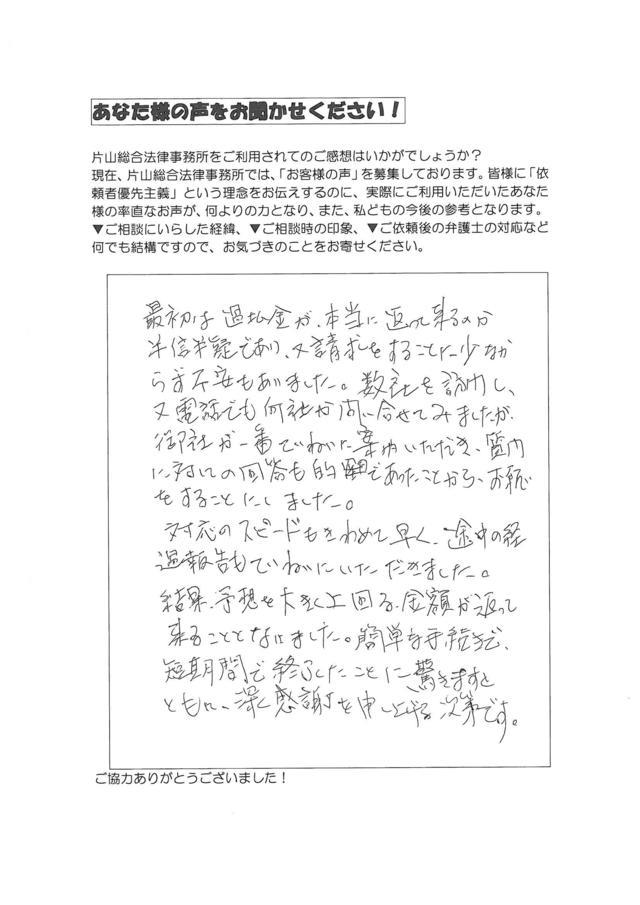 あなた様の声をお聞かせください！
片山総合法律事務所をご利用されてのご感想はいかがでしょうか？
現在、片山総合法律事務所では、「お客様の声」を募集しております。皆様に「依
頼者優先主義」という理念をお伝えするのに、実際にご利用いただいたあなた
様の率直なお声が、何よりの力となり、また、私どもの今後の参考となります。
▼ご相談にいらした経緯、▼ご相談時の印象、▼ご依頼後の弁護士の対応など
何でも結構ですので、お気づきのことをお寄せください。
最初は過払金が、本当に返って来るのか
半信半疑であり、又請求をすることに少なか
らず不安もありました。数社を訪問し、
又電話でも何社か問い合せてみましたが、
御社が一番ていねいに案内いただき、質問
に対しての回答も的確であったことから、お願い
をすることにしました。
対応のスピードもきわめて早く、途中の経
過報告もていねいにいただきました。
結果、予想を大きく上回る、金額が返って
来ることとなりました。簡単な手続きで、
短期間で終了したことに驚きますと
ともに、深く感謝を申し上げる次第です。
ご協力ありがとうございました！